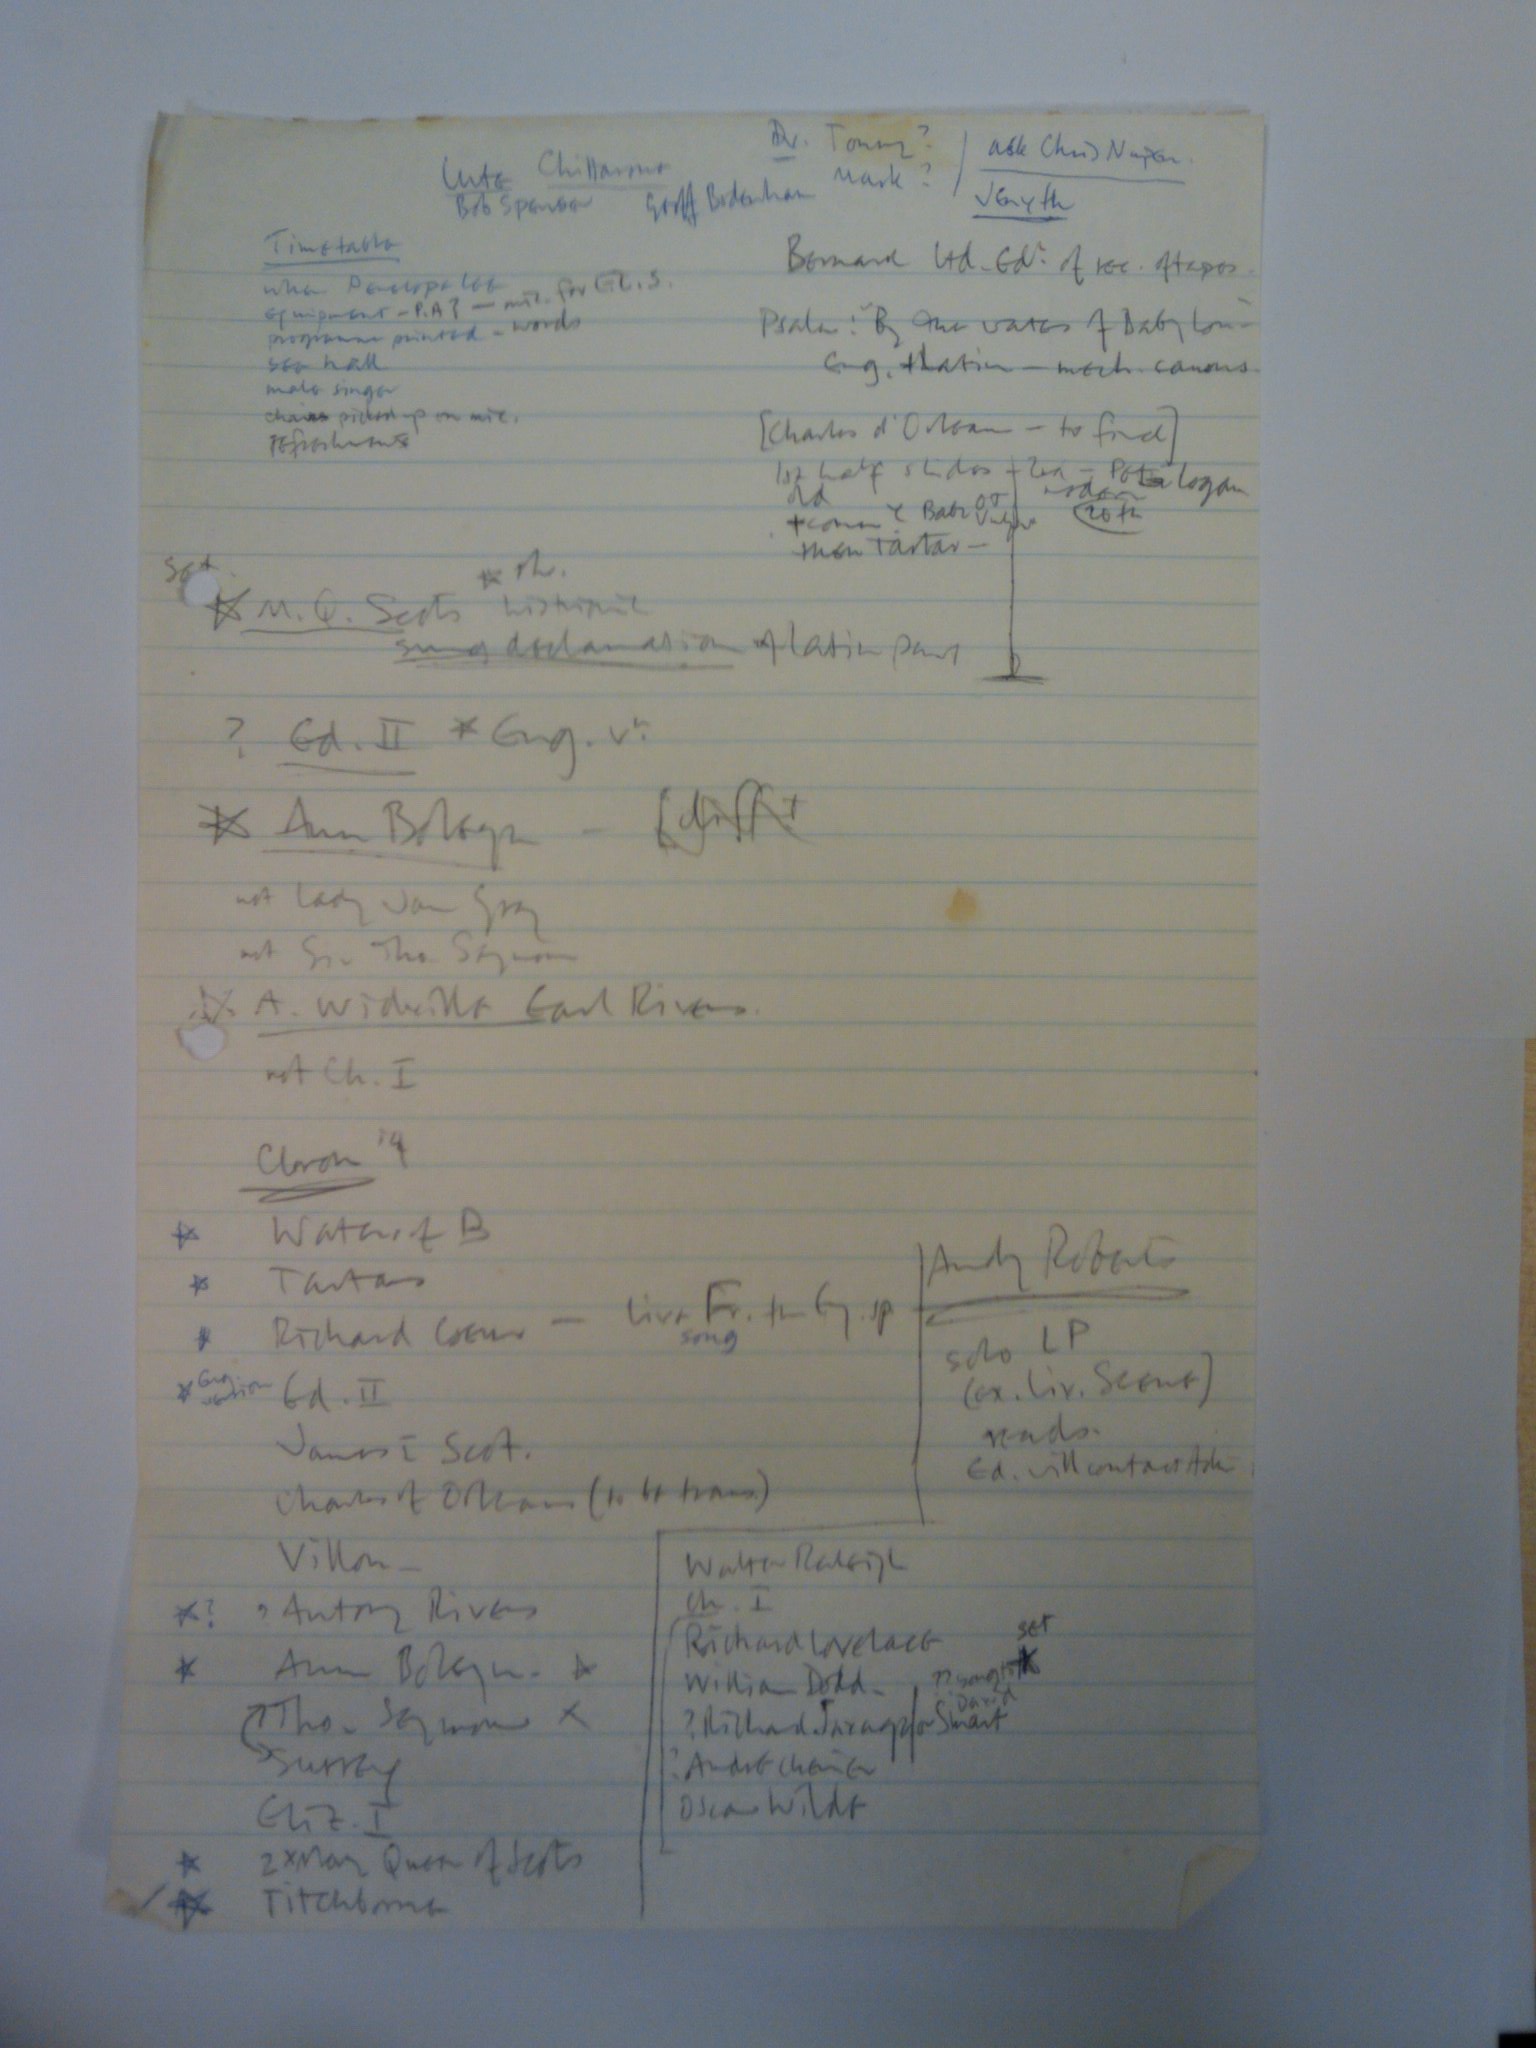 Dr. Tommy?
Mark?
ask Chris
length
Lute
Bob Spencer
Geoff Bodenham
Timetable
when Penelope Lee
equipment - P.A? - mic. for E.L.S.
programme printed - words
see hall
male singer
picked up on mic.
refreshments
Bernard Ltd. Edn. of rec. of tapes.
Psalm: By the waters of Babylon -
Eng. + Latin - mech. canons.
[Charles d'Orleans - to find]
1st half slides Logan
old modern
20th
then Tartar -
set
M. Q. Scots
sung declamation of Latin part
? Ed. II * Eng. vn.
* Ann Boleyn -
not Lady Jane Grey
not Sir Tho. Seymour
A. Widville Earl Rivers.
not Ch. I
Chron
* Waters of B
* Tartars
* Richard Coeur - Live Fr. then Eng. sp
song
* Eng version Ed. II
James I Scot.
Charles of Orleans (to be trans.)
Villon -
*? ? Antony Rivers
* Ann Boleyn. *
Tho. Seymour x
Surrey
Eliz. I
* 2 x Mary Queen of Scots
* Titchborne
Andy Roberts
solo LP
(ex. Liv. Scene)
reads.
Ed. will contact
Walter Raleigh
Ch. I
Richard Lovelace
set
William Dodd -
? Richard Savage / or David Smart
? André Chenier
Oscar Wilde